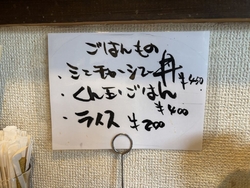 ごはんもの
・シーチャーシュー丼 ¥450
・くん玉ごはん ¥400
・ライス ¥200